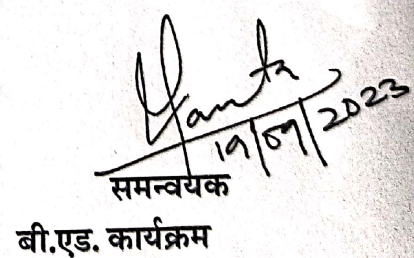 19/09/2023
समन्वयक
बी.एड. कार्यक्रम